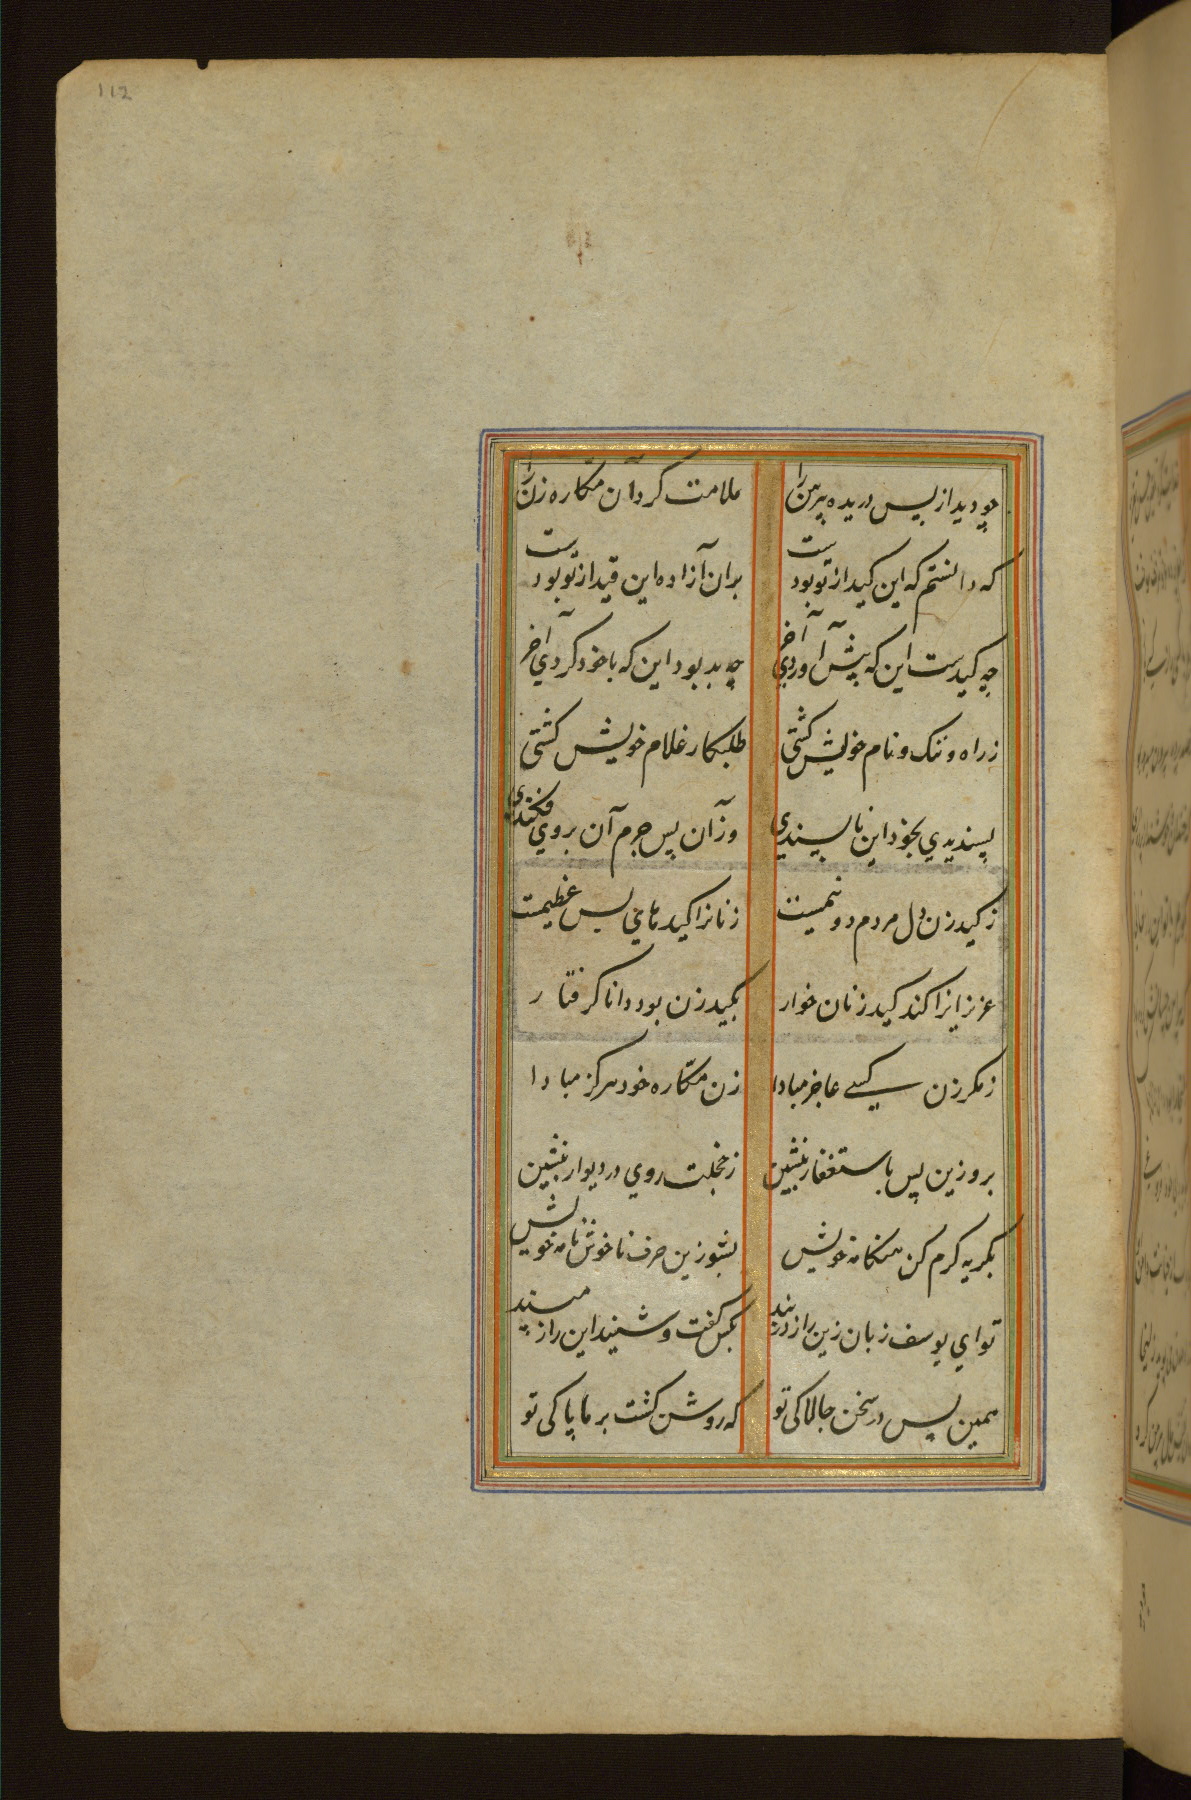 112
چو دید از پس دریده پیرهن را ملامت کرد آن مکّاره زن را
که دانستم که این کید از تو بودست بران آزاده این قید از تو بودست
چه کیدست این که پیش آوردی آخر چه بد بود این که با خود کردی آخر
ز راه و ننک و نام خویش کشتی طلبکار غلام خویش کشتی
پسندیدی بخود این ناپسندی وز آن پس جرم آن بروی فکندی
ز کید زن دل مردم دو نیمست زنانرا کیدهای بس عظیمت
عزیزانرا کند کید زنان خوار بکید زن بود دانا کرفتار
ز مکر زن کسی عاجز مبادا زن مکّاره خود هرکز مبادا
برو زین پس باستغفار بنشین ز خجلت روی در دیوار بنشین
بکریه کرم کن هنکامه خویش بشو زین حرف ناخوش نامه خویش
تو ای یوسف زبان زین راز دربند بکس کفت و شنید این راز مپسند
همین بس در سخن جالاکی تو که روشن کشت بر ما پاکی تو